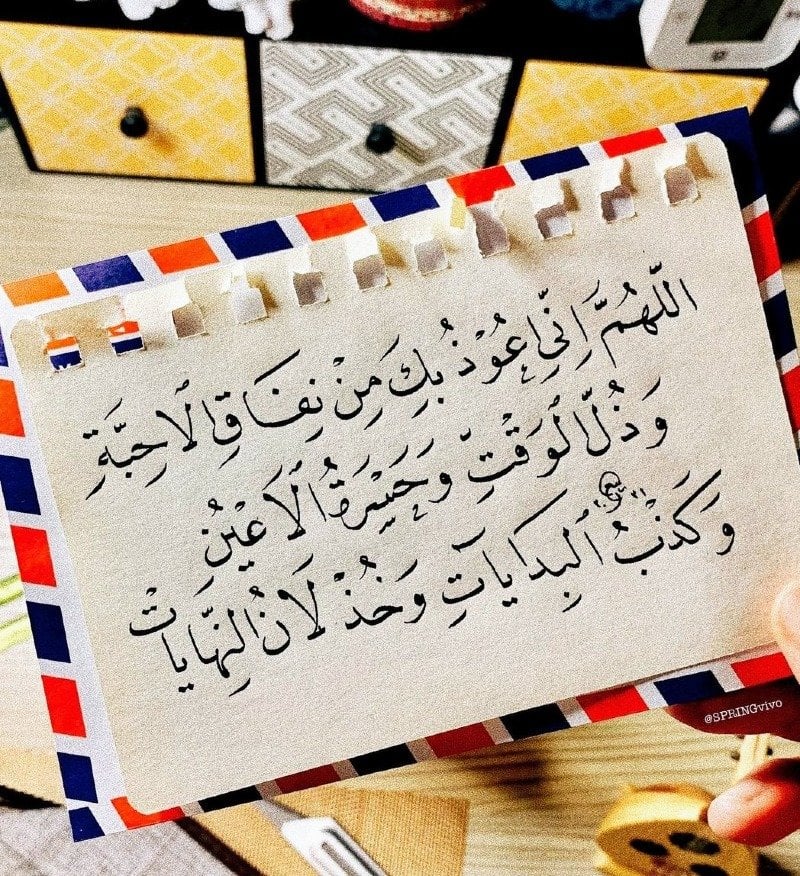 اللّهُمَّ اِنِّي اعُوْذُ بِكَ مِنْ نِفَاقِ الاَحِبَّةِ
وَذُلّ الوَقْتِ وَحَسْرَةُ الاَعْيُنِ
وَكَذْبُ البِدَايآتِ وَخُذْلَانُ النِّهَايَاتْ
@SPRINGvivo